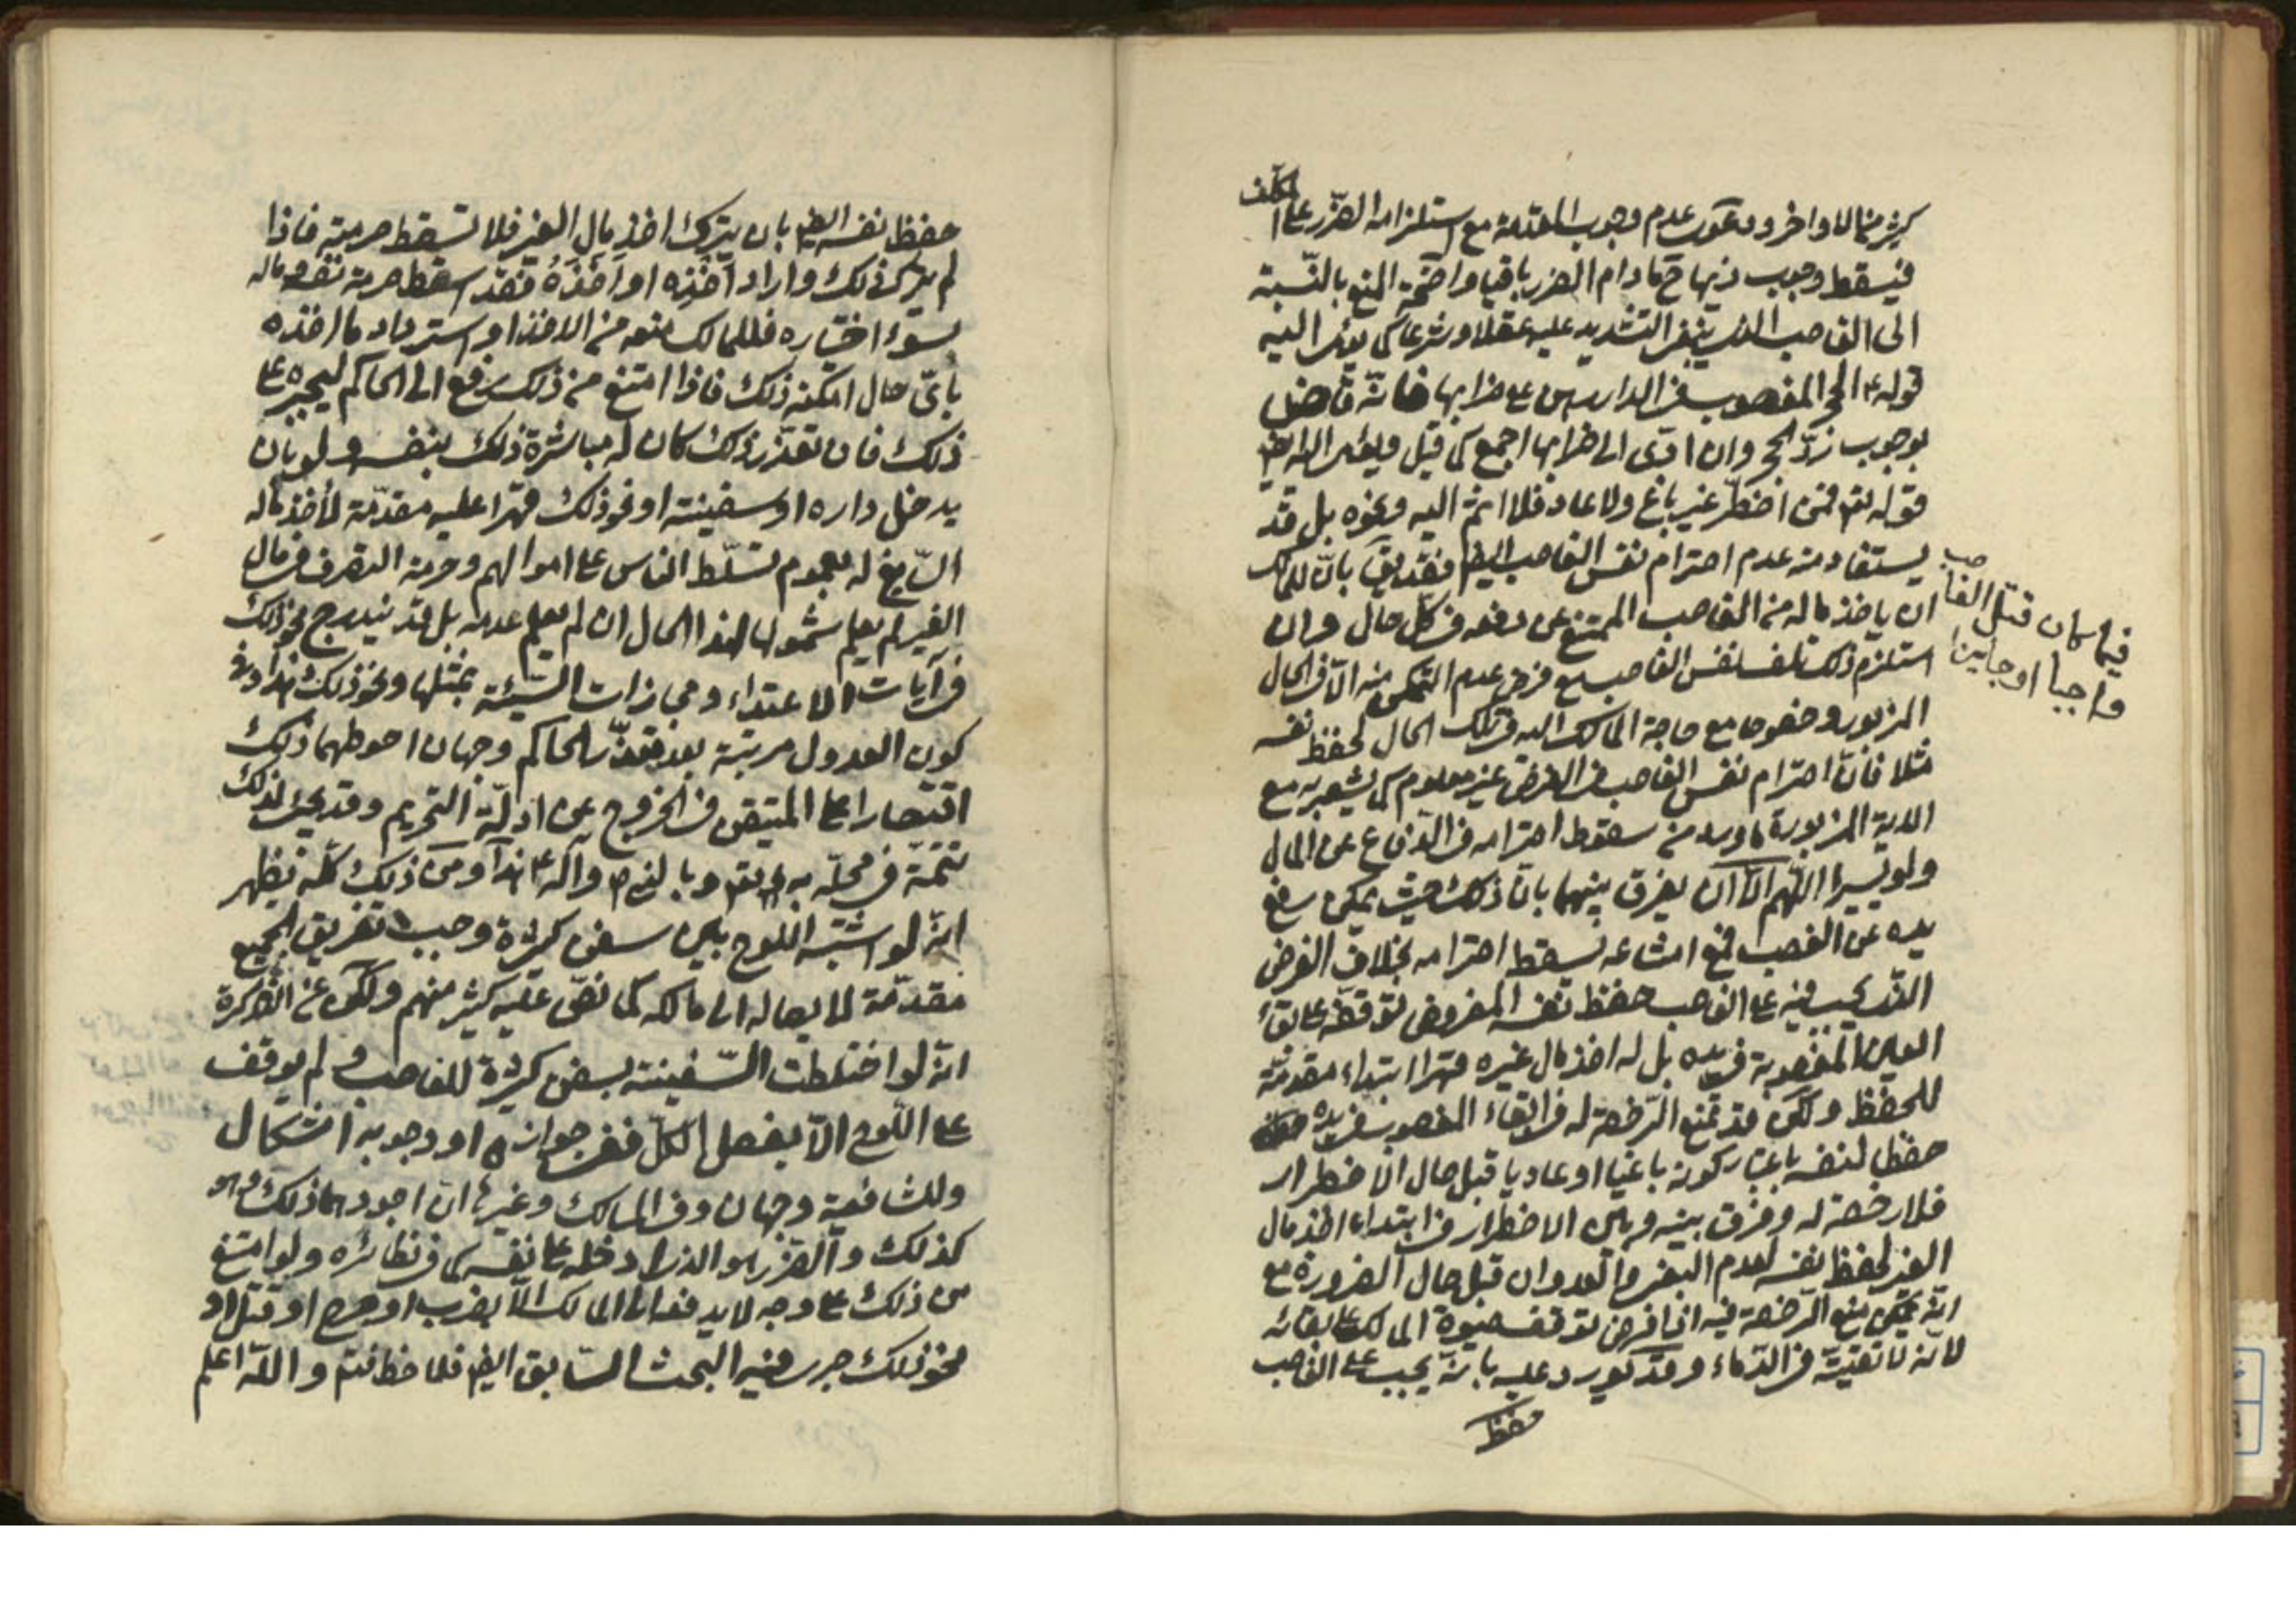 كثير منا لما واخر ودعوى عدم وجوب المقدمة مع استلزامه الضرر على المكلف
فيسقط وجوب ذيها ح ما دام الضرر باقيا واضحة المنع بالنسبة
الى الغاصب الذى ينبغى التشديد عليه عقلا وشرعا كما يومى اليه
قوله ع الحجر المغصوب فى الدار رهن على خرابها فانه قاض
بوجوب رد الحجر وان ادى الى خرابها اجمع كما قيل ويومى اليه ايض
قوله تع فمن اضطر غير باغ ولا عاد فلا اثم اليه ونحوه بل قد
يستفاد منه عدم احترام نفس الغاصب ايض فقد يق بان للمالك
ان ياخذ ماله من الغاصب الممتنع عن دفعه فى كل حال وان
استلزم ذلك تلف نفس الغاصب مع فرض عدم التمكن منه الا فى الحال
المزبور وخصوصا مع حاجة المالك اليه فى تلك الحال لحفظ نفسه
مثلا فان احترام نفس الغاصب فى الفرض غير معلوم كما يشعر به مع
الاية المزبورة ما ورد من سقوط احترامه فى الدفاع عن المال
ولو يسيرا اللهم الا ان يفرق بينهما بان ذلك حيث يمكن رفع
يده عن الغصب فمع امتناعه يسقط احترامه بخلاف الفرض
الذى يجب فيه على الغاصب حفظ نفسه المفروض توقفه على بقاء
العين المغصوبة فى يده بل له اخذ مال غيره قهرا ابتداء مقدمة
للحفظ ولكن قد تمنع الرخصة له فى ابقاء المغصوب فى يده
حفظا لنفسه باعتبار كونه باغيا او عاديا قبل حال الاضطرار
فلا رخصة له وفرق بينه وبين الاضطرار فى ابتداء اخذ مال
الغير لحفظ نفسه لعدم البغى والعدوان قبل حال الضرورة مع
انه يمكن منع الرخصة فيه اذا فرض توقف حيوة المالك على بقائه
لانه لا تقية فى الدماء وقد يورد عليه بانه يجب على الغاصب
حفظ
فيما كان قتل الغاصب
واجبا او جايزا
حفظ نفسه ايض بان يترك اخذ مال الغير فلا تسقط حرمته فاذا
لم يترك ذلك واراد اخذه او اخذه فقد اسقط حرمة نفسه وماله
بسوء اختياره فللمالك منعه من الاخذ او استرداد ما اخذه
باى حال امكنه ذلك فاذا امتنع من ذلك رفع الى الحاكم ليجبره على
ذلك فان تعذر ذلك كان له مباشرة ذلك بنفسه ولو بان
يدخل داره او سفينته او نحو ذلك قهرا عليه مقدمة لاخذ ماله
السايغ له بعموم تسلط الناس على اموالهم وحرمة التصرف فى مال
الغير لم يعلم شمولها لهذا الحال ان لم يعلم عدمه بل قد يندرج نحو ذلك
فى آيات الاعتداء ومجازات السيئة بمثلها ونحو ذلك هذا وفى
كون العدول مرتبة بعد تعذر الحاكم وجهان احوطهما ذلك
اقتصارا على المتيقن فى الخروج عن ادلة التحريم وقد يجئ لذلك
تتمة فى محله به تع وبالنبى ص وآله ع هذا ومن ذلك كله يظهر
انه لو اشتبه اللوح بين سفن كثيرة وجب تفريق الجميع
مقدمة لايصاله الى مالكه كما نص عليه كثير منهم ولكن عن التذكرة
انه لو اختلطت السفينة بسفن كثيرة للغاصب ولم يوقف
على اللوح الا بفصل الكل ففى جوازه او وجوبه اشكال
وللشافعية وجهان وفى المسالك وغيرها ان اجودهما ذلك وهو
كذلك والضرر هو الذى ادخله على نفسه كما فى نظائره ولو امتنع
من ذلك على وجه لا يدفعه الى المالك الا بضرب او جرح او قتل او
نحو ذلك جرى فيه البحث السابق ايض فلاحظ فتم والله اعلم